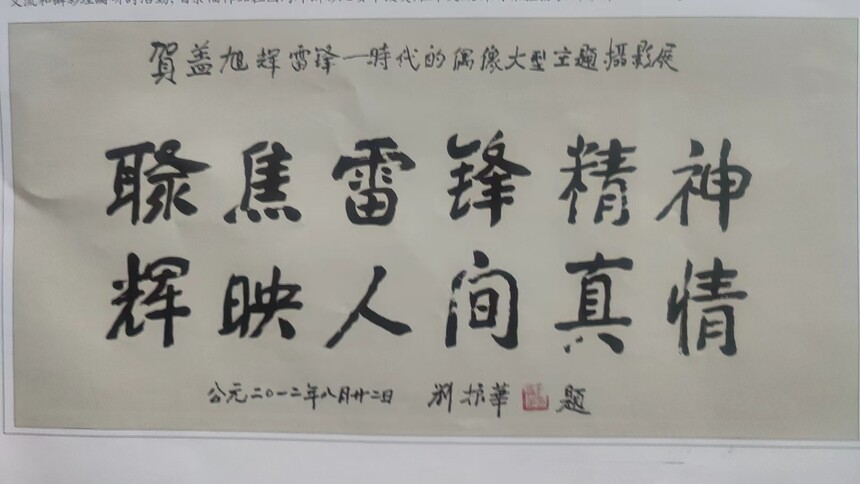 賀盖旭辉雷锋一時代的偶像大型主题攝影展
聚焦雷锋精神
辉映人间真情
公元二〇一二年八月廿二日 刘振華 题